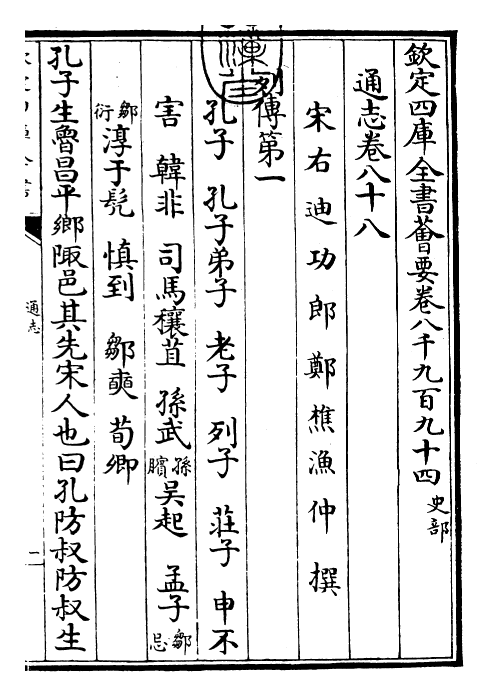 欽定四庫全書薈要卷八千九百九十四史部
通志卷八十八
宋右迪功郎鄭樵漁仲撰
列傳第一
孔子 孔子弟子 老子 列子 莊子 申不
害 韓非 司馬穰苴 孫武孫臏吳起 孟子鄒忌
鄒衍淳于髡 慎到 鄒奭 荀卿
孔子生魯昌平鄉陬邑其先宋人也曰孔防叔防叔生
通志
二